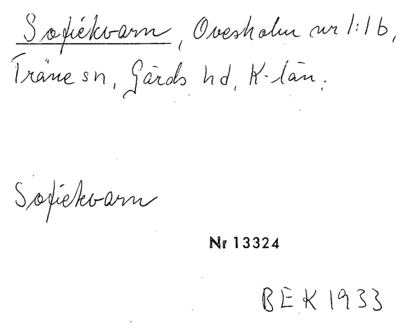 Sofiekvarn, Ovesholm nr 1:1 b,
Träne sn, Gärds hd, K-län.
Sofiekvarn
Nr 13324
BEK 1933